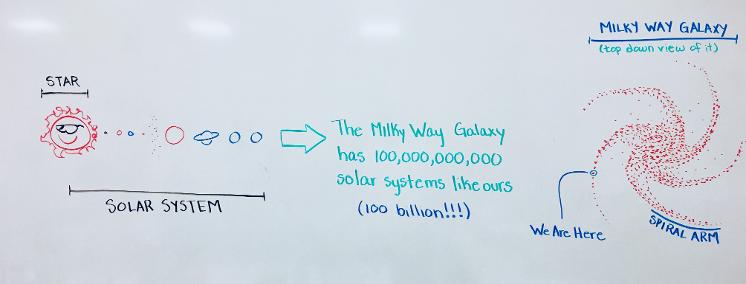 STAR
SOLAR SYSTEM
The Milky Way Galaxy
has 100,000,000,000
solar systems like ours
(100 billion!!!)
MILKY WAY GALAXY
(top down view of it)
We Are Here
SPIRAL ARM